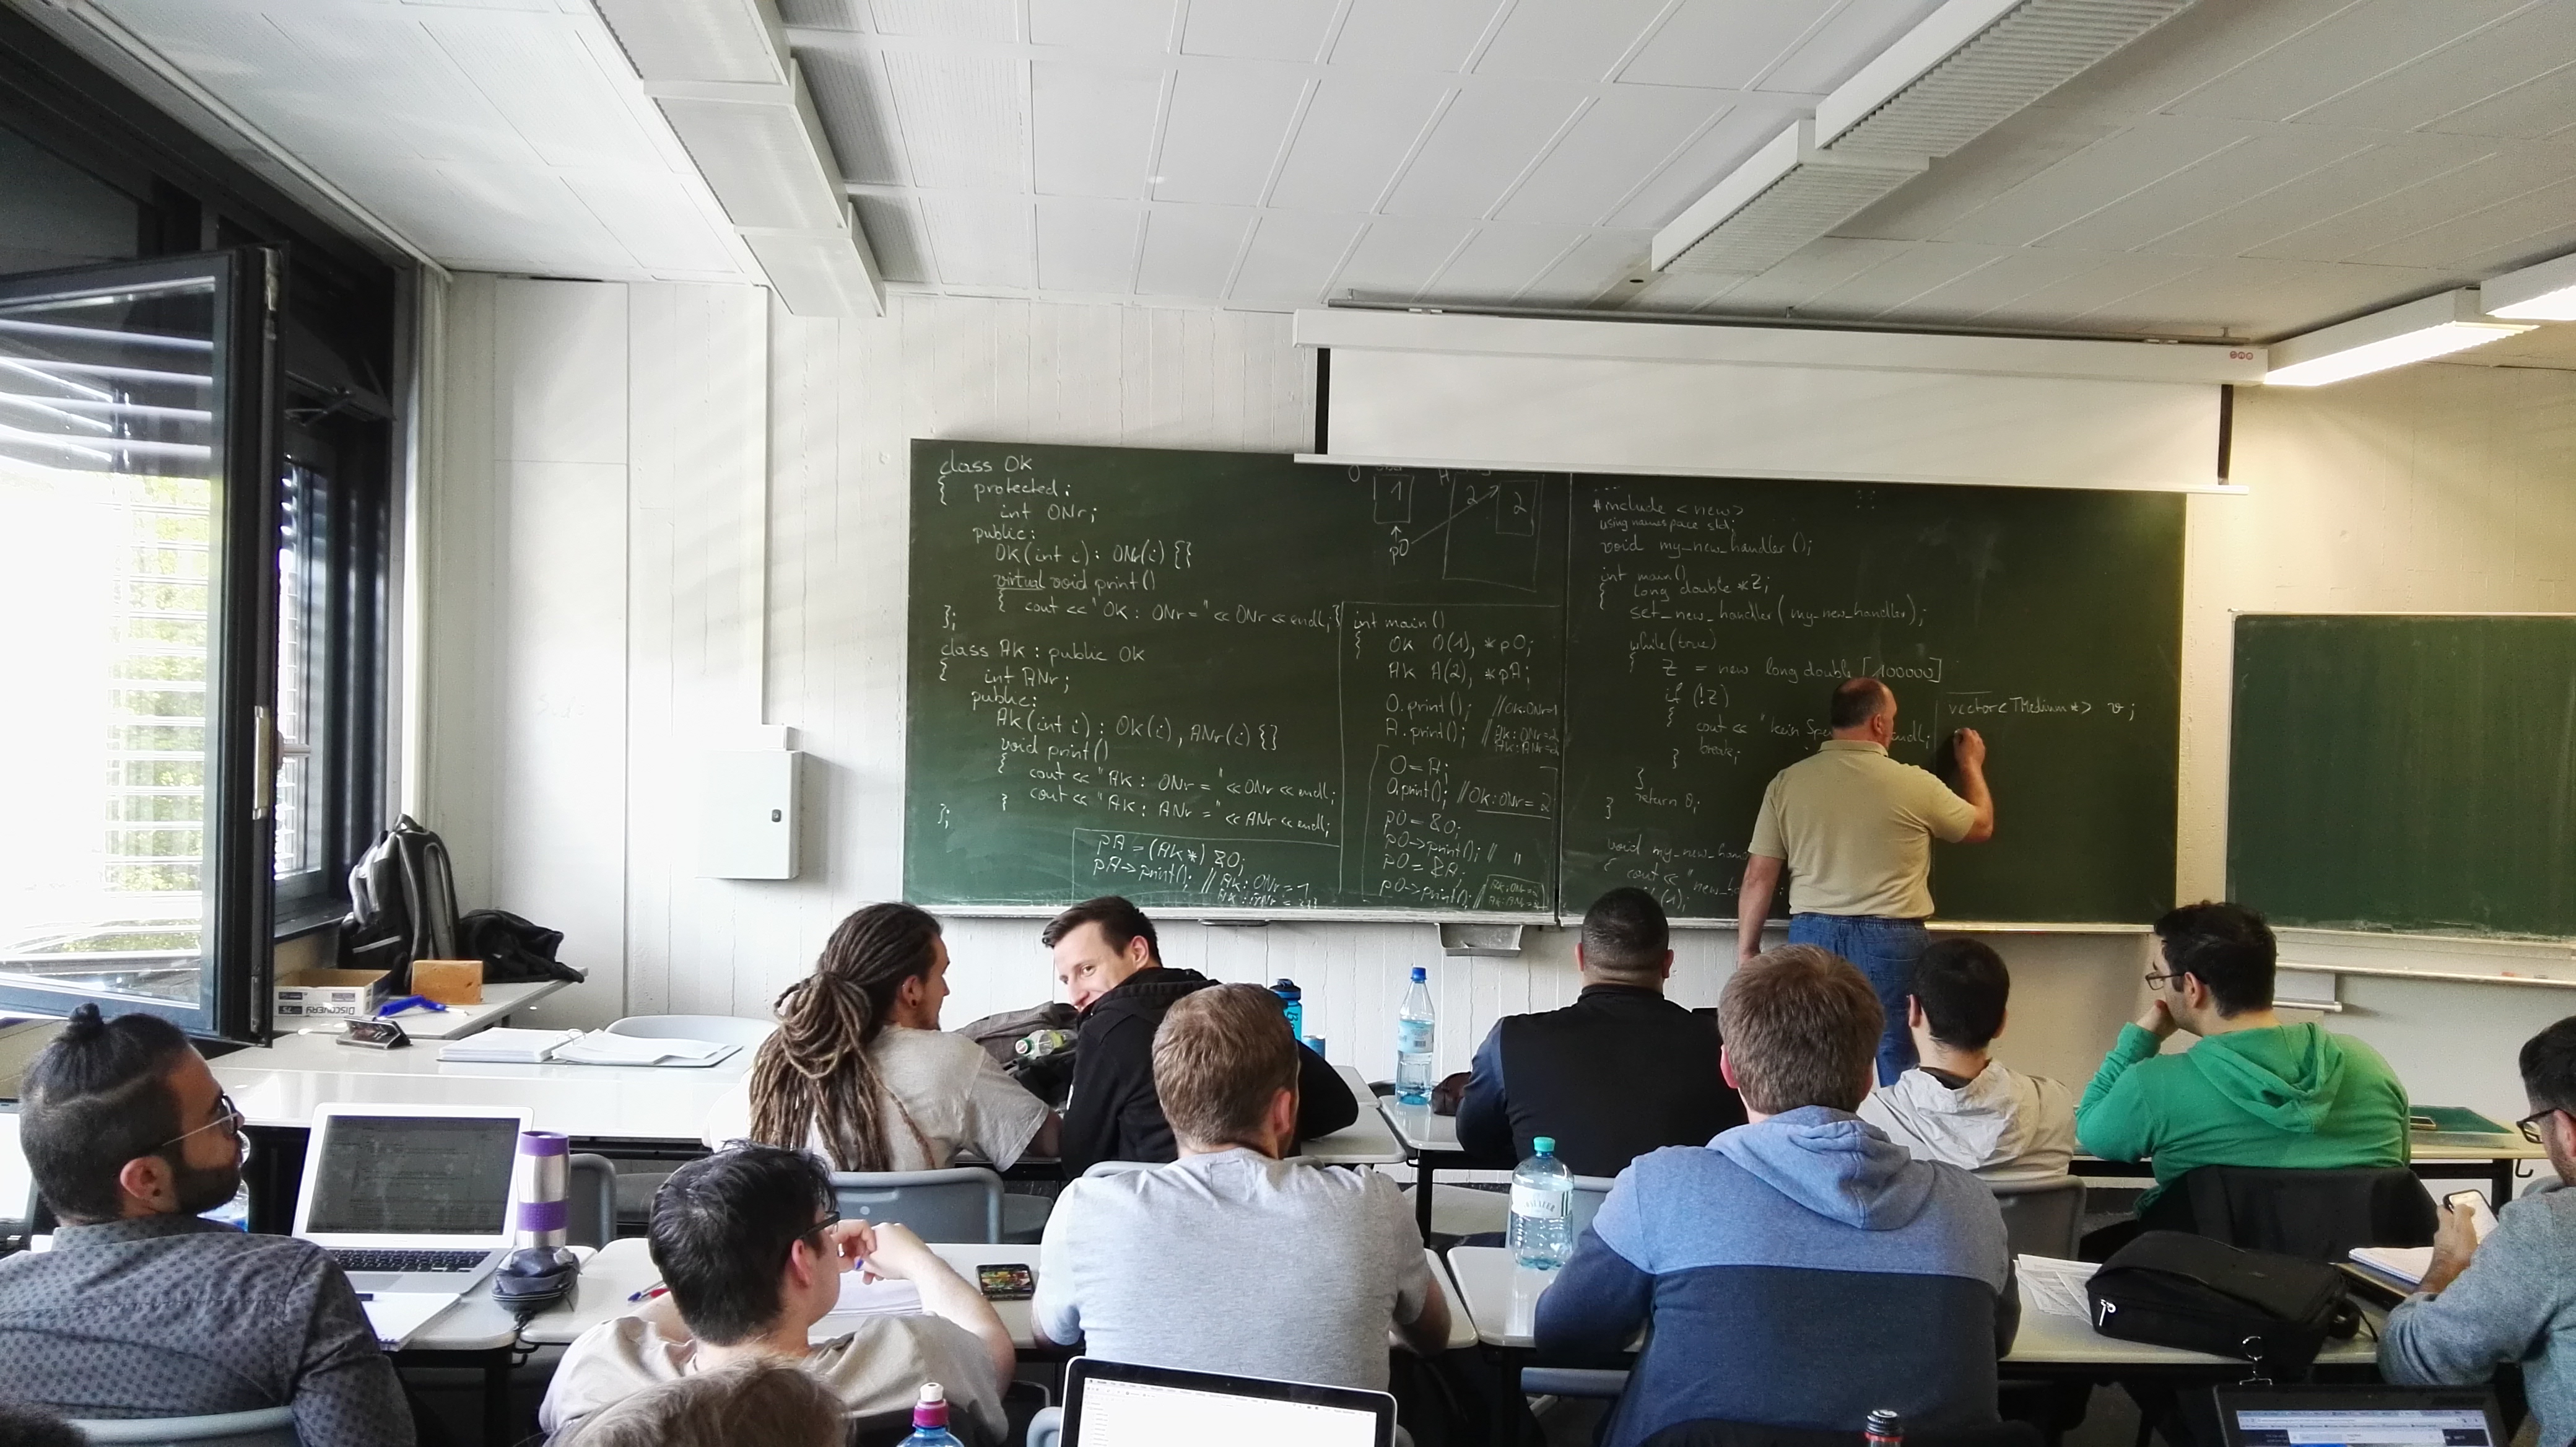 class OK
{ protected:
int ONr;
public:
OK(int i): ONr(i) {}
virtual void print()
{ cout << "OK: ONr = " << ONr << endl; }
};
class AK : public OK
{ int ANr;
public:
AK(int i) : OK(i), ANr(i) {}
void print()
{ cout << "AK: ONr = " << ONr << endl;
cout << "AK: ANr = " << ANr << endl;
}
};
pA = (AK*) &O;
pA->print(); // AK: ONr = 1
AK: ANr =
1
pO
2
2
int main()
{ OK O(1), *pO;
AK A(2), *pA;
O.print(); // OK:ONr=1
A.print(); // AK:ONr=2
AK:ANr=2
O=A;
O.print(); // OK:ONr=2
pO=&O;
pO->print(); // "
pO=&A;
pO->print(); // AK:ONr=2
AK:ANr=2
...
#include <new>
using namespace std;
void my_new_handler();
int main()
{ long double *z;
set_new_handler(my_new_handler);
while(true)
{ z = new long double [100000]
if (!z)
{ cout << "kein endl;
break;
}
}
return 0;
}
void
{ cout <<
(1);
vector<TMedium*> v;
DISCOVERY